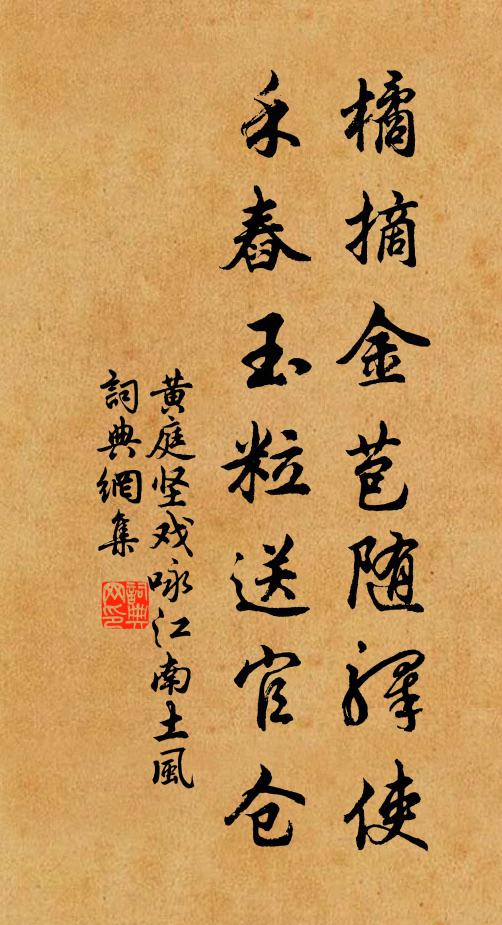 橘摘金苞随驛使
禾舂玉粒送官仓
黄庭坚戏咏江南土風
詞典網集
詞典网印